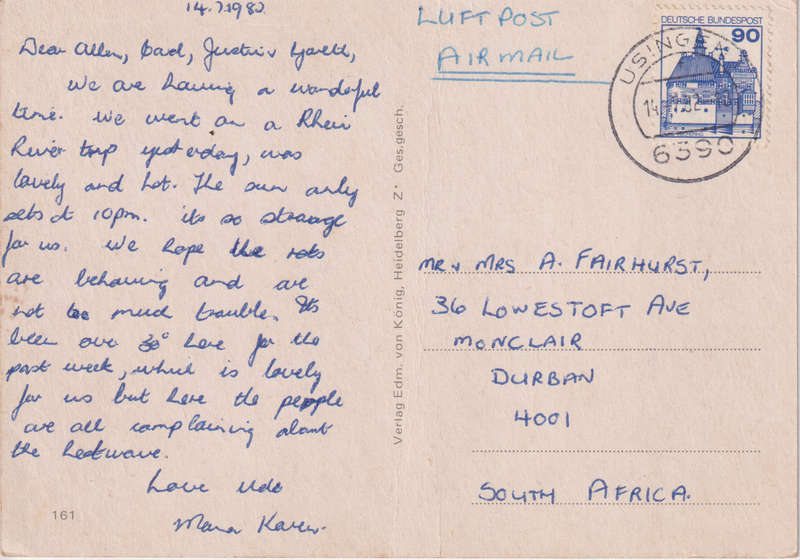 14.7.1982
Dear Allen, Gail, Justin & Gareth,
We are having a wonderful
time. We went on a Rhein
River trip yesterday, was
lovely and hot. The sun only
sets at 10pm. its so strange
for us. We hope the
are behaving and are
not too much trouble. Its
been over 30° here for the
past week, which is lovely
for us but here the people
are all complaining about
the heatwave.
Love Udo
Karen.
161
Verlag Edm. von König, Heidelberg Z* Ges.gesch.
LUFTPOST
AIRMAIL
DEUTSCHE BUNDESPOST
90
USINGEN
6390
MR & MRS A. FAIRHURST,
36 LOWESTOFT AVE
MONCLAIR
DURBAN
4001
SOUTH AFRICA.